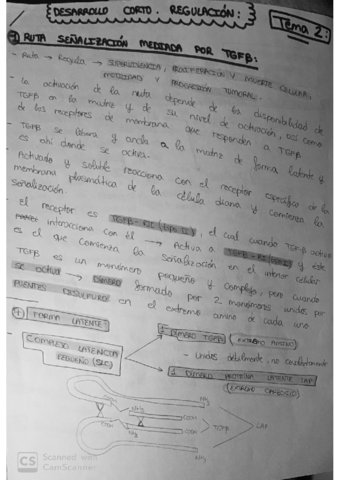 DESARROLLO CORTO. REGULACIÓN:
Tema 2:
RUTA SEÑALIZACIÓN MEDIADA POR TGFβ:
- Ruta → Regula → SUPERVIVENCIA, PROLIFERACIÓN Y MUERTE CELULAR,
MOTILIDAD Y PROGRESIÓN TUMORAL.
- La activación de la ruta depende de la disponibilidad de
TGFβ en la matriz y de su nivel de activación, así como
de los receptores de membrana que responden a TGFβ
- TGFβ se libera y ancla a la matriz de forma latente y
es ahí donde se activa.
- Activado y soluble reacciona con el receptor específico de la
membrana plasmática de la célula diana y comienza la
señalización.
- El receptor es TGFβ-RII, el cual cuando TGFβ activo
interacciona con él → Activa a TGFβ-RI y este
es el que comienza la señalización en el interior celular
- TGFβ es un monómero pequeño y complejo, pero cuando
se activa → DÍMERO formado por 2 monómeros unidos por
PUENTES DISULFURO en el extremo amino de cada uno
FORMA LATENTE:
COMPLEJO LATENCIA
PEQUEÑO (SLC)
1 DÍMERO TGFβ (EXTREMO AMINO)
- Unidos débilmente, no covalentemente
1 DÍMERO PROTEÍNA LATENTE LAP
(EXTREMO CARBOXILO)
NH₂
COOH
NH₂
COOH
TGFβ
LAP
COOH
NH₂
COOH
NH₂
CS Scanned with
CamScanner